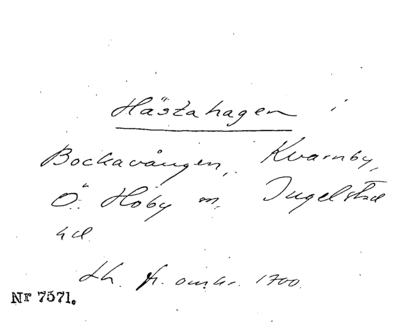 Hästahagen i
Bockavången, Kvarnby,
Ö. Hoby m, Ingelstad
hd.
Lh. fr. omkr. 1700.
Nr 7571.